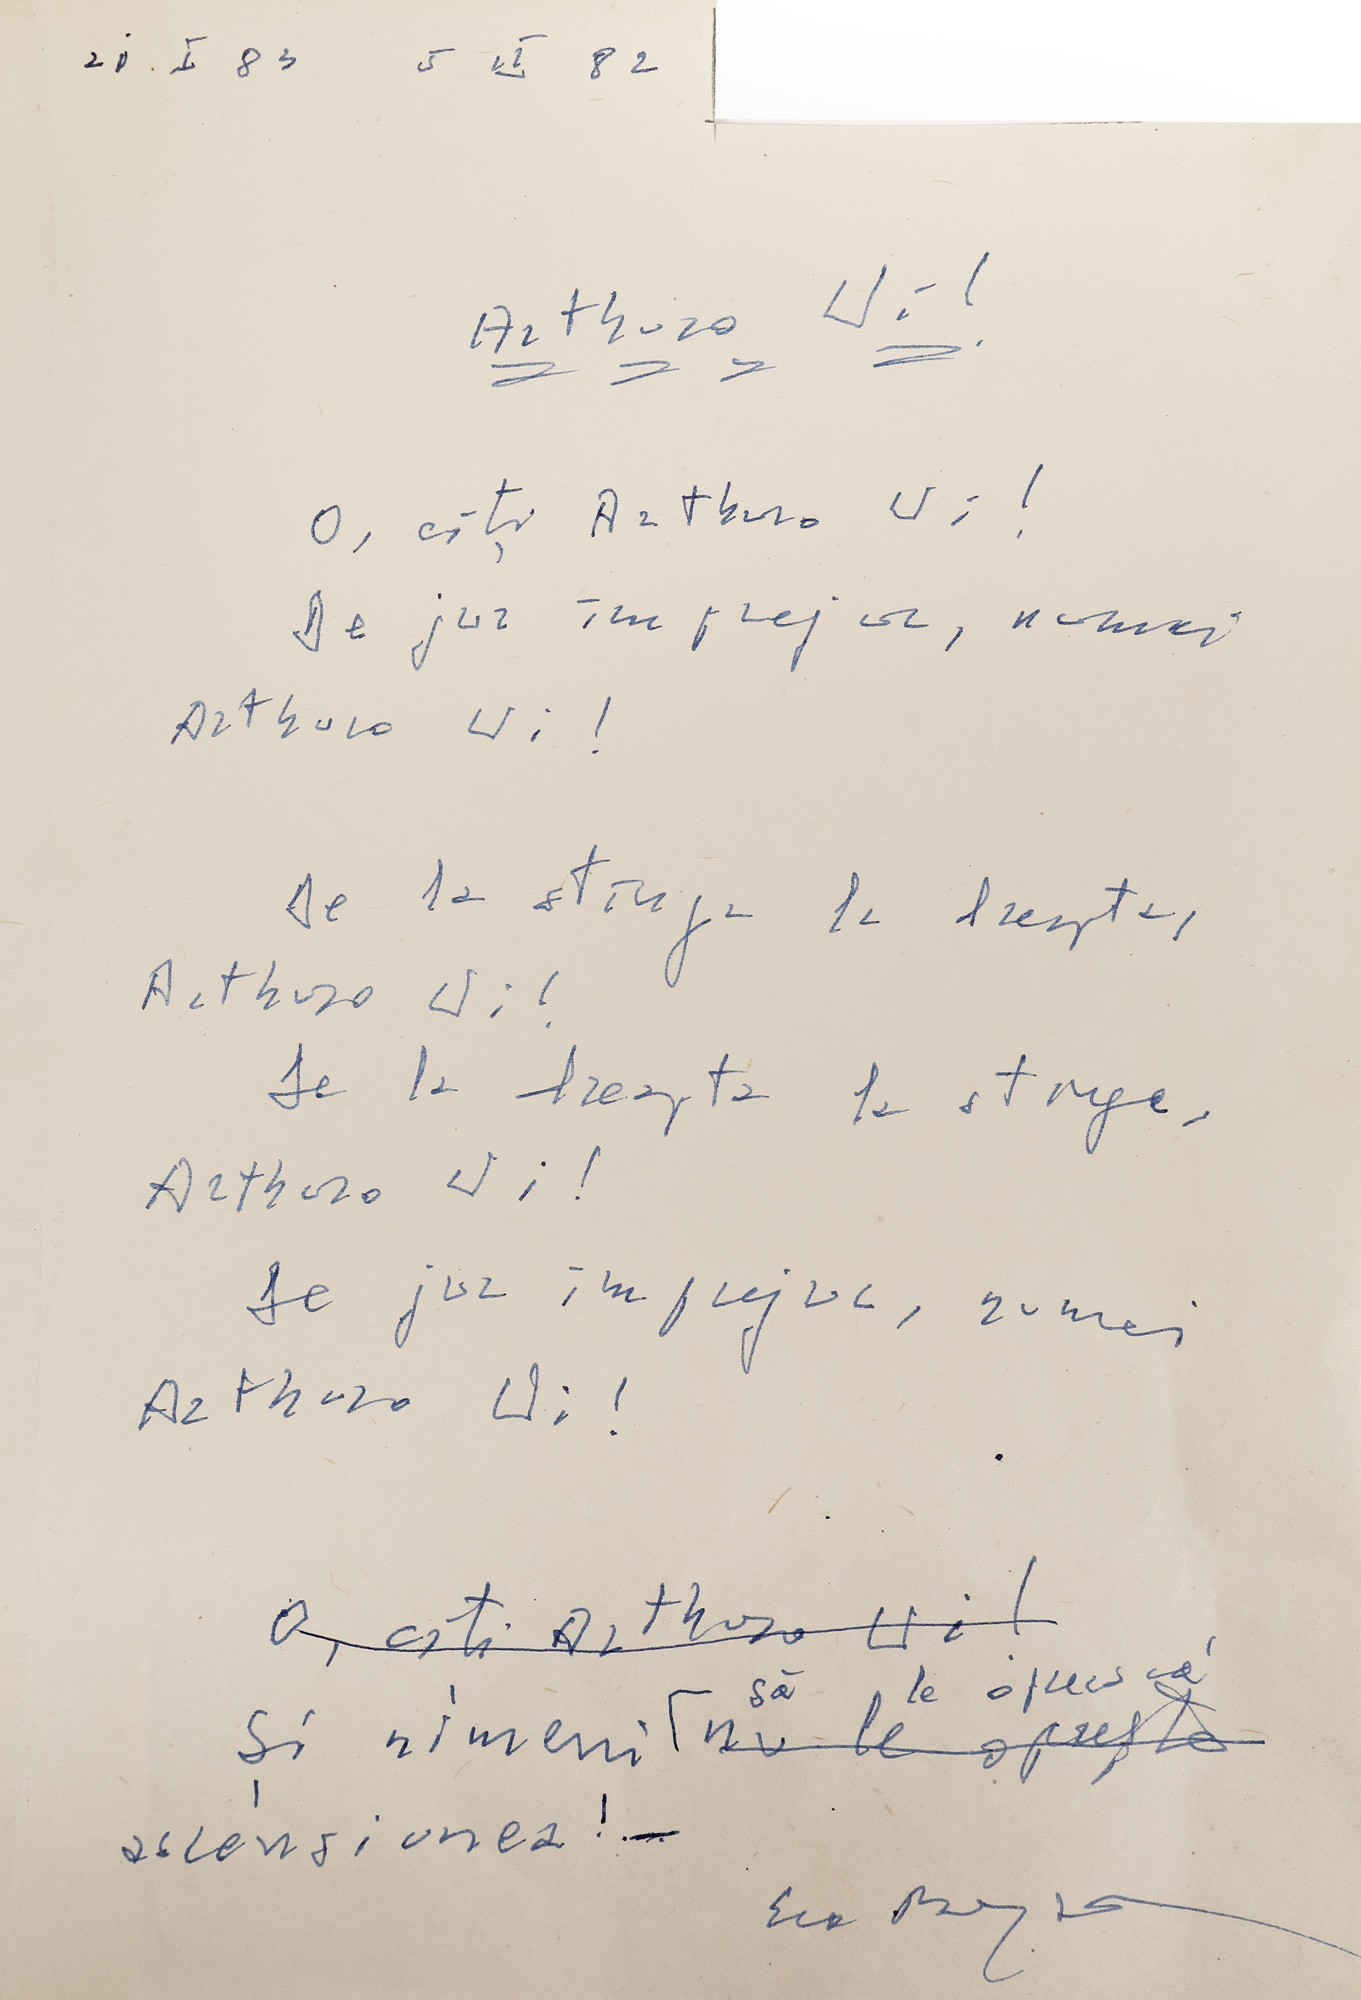 20 I 83 5 VI 82
Arthuro Ui!
O, cîți Arthuro Ui!
De jur împrejur, numai
Arthuro Ui!
De la stînga la dreapta,
Arthuro Ui!
De la dreapta la stînga,
Arthuro Ui!
De jur împrejur, numai
Arthuro Ui!
O, cîți Arthuro Ui!
să le oprească
Și nimeni nu le oprește
ascensiunea! –